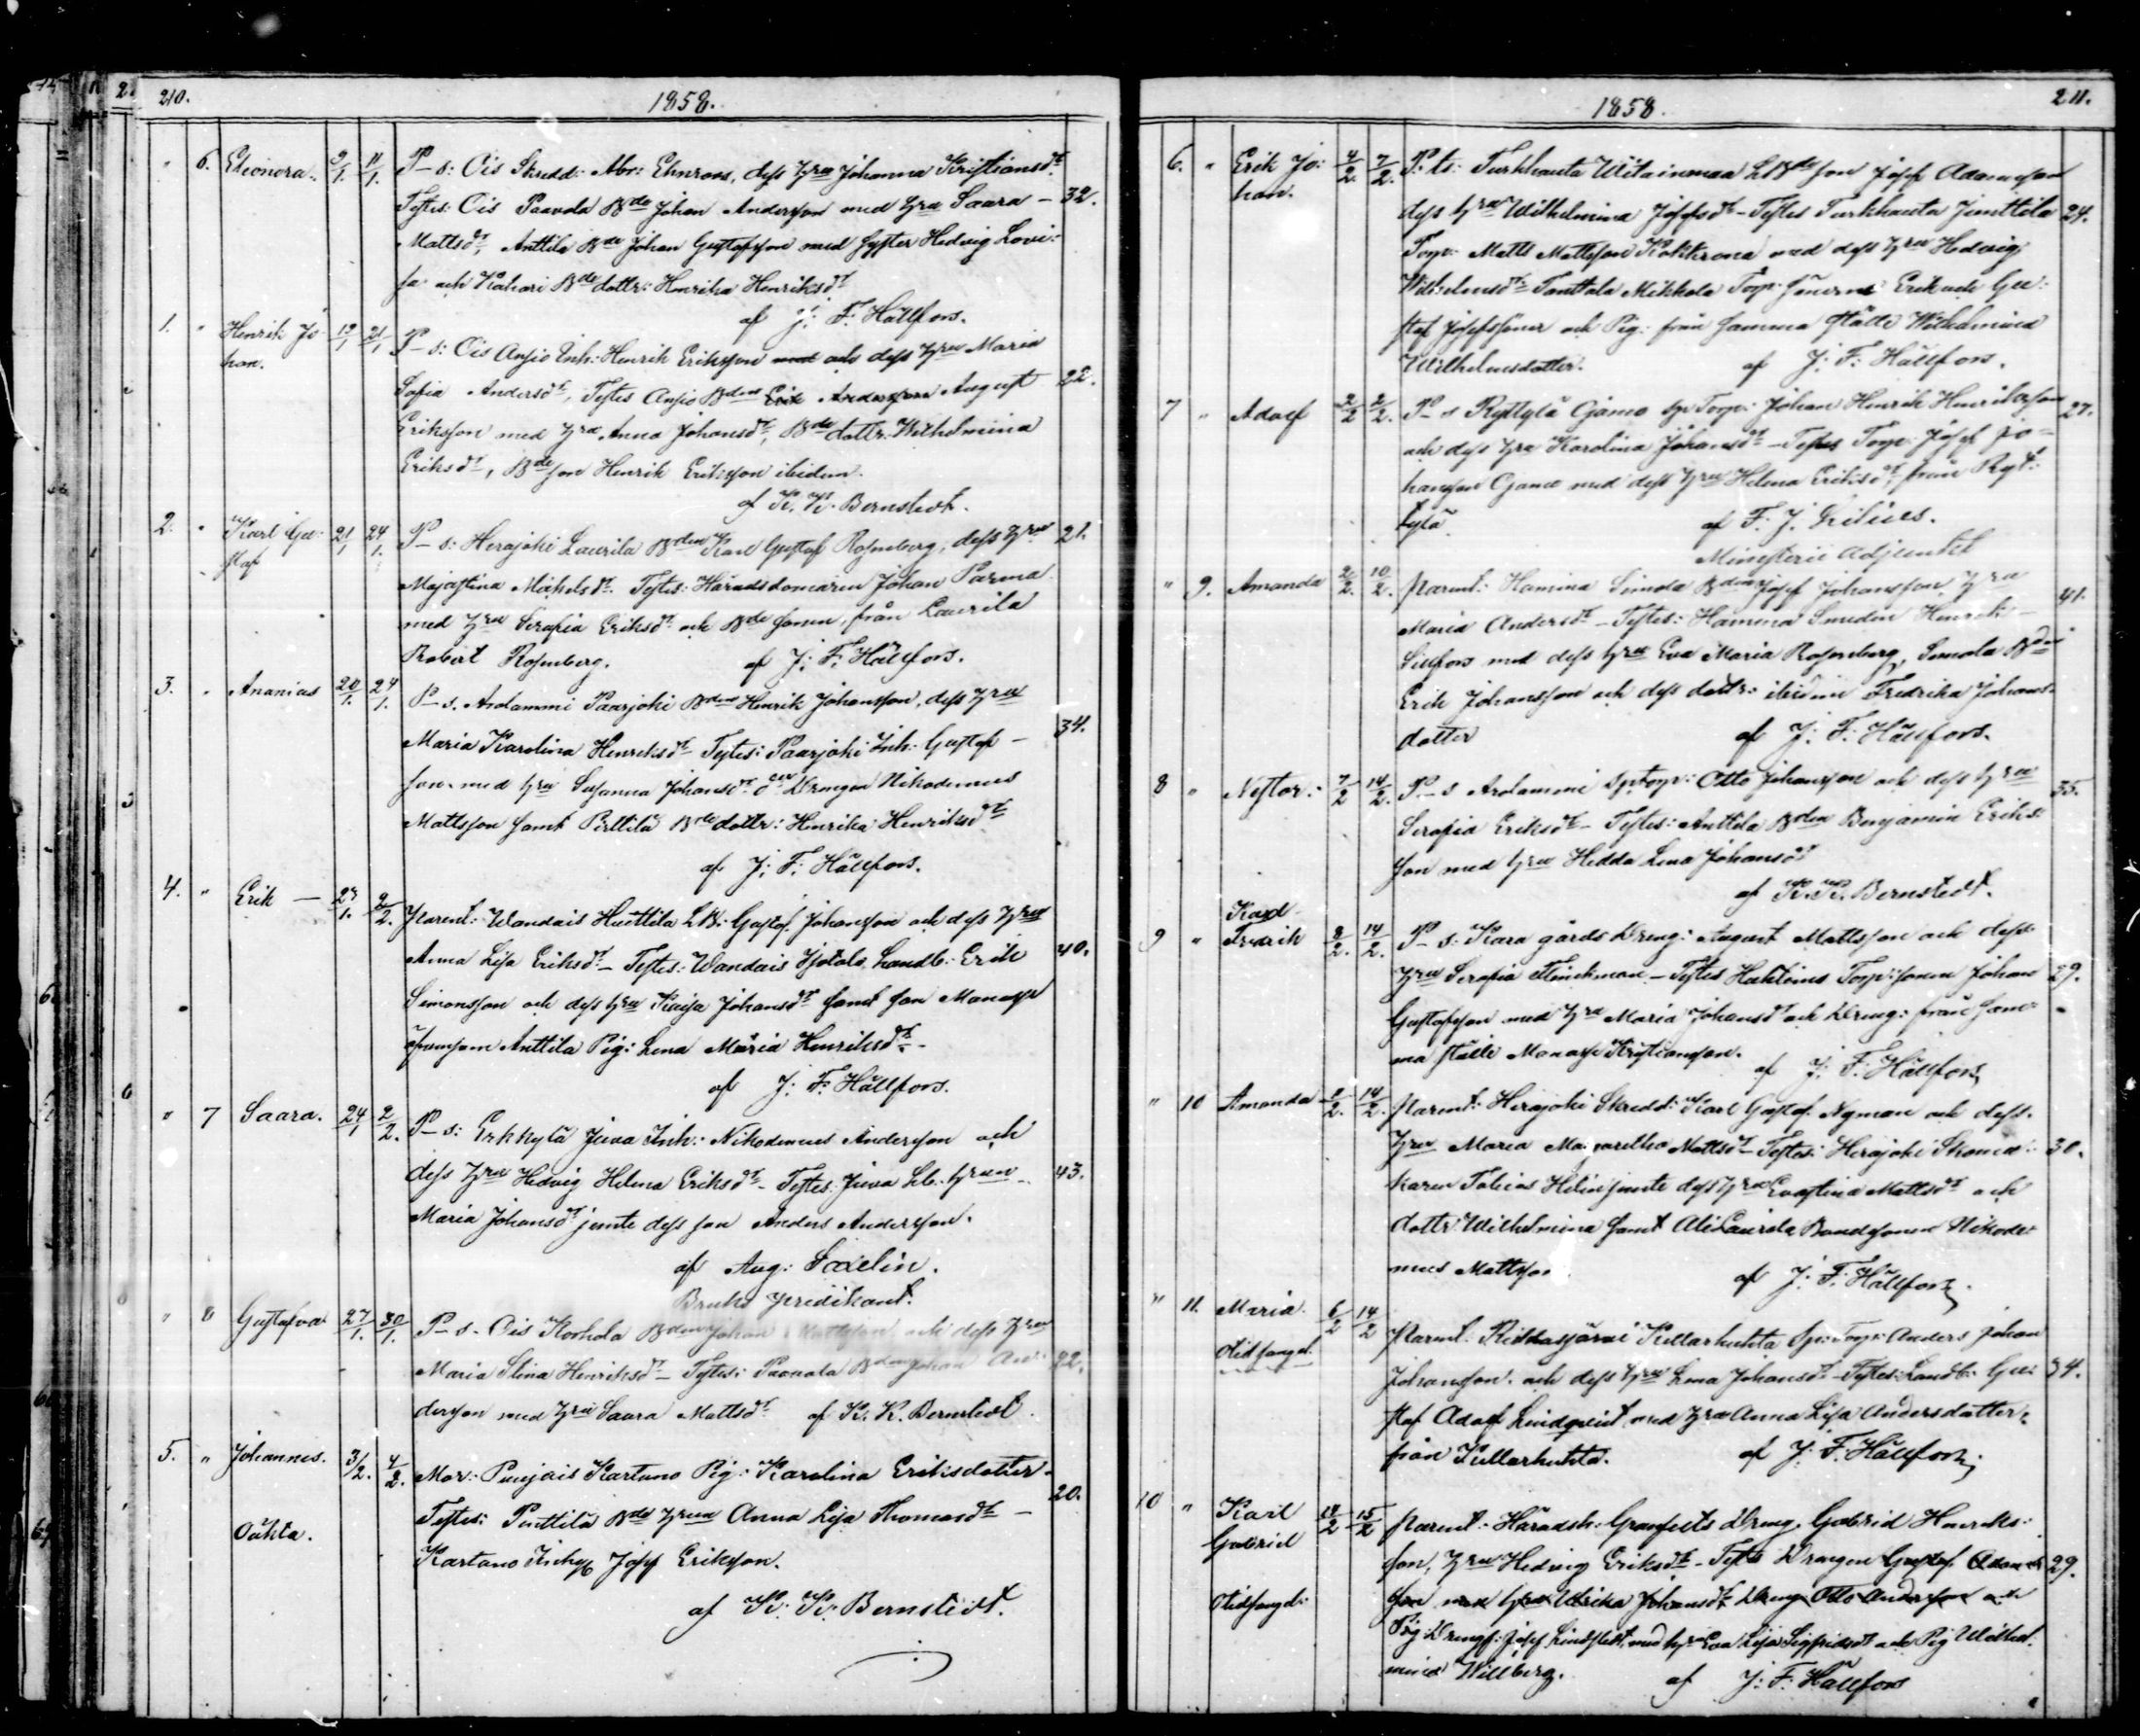 210. 1858.
" 6. Eleonora. 9/1. 11/1. P_s: Ois Skredd: Abr: Ehnroos, dess hru Johanna Kristiansdr.
Testes: Ois Paavola Bde Johan Andersson med hru Saara – 32.
Mattsdr, Anttila Bde Johan Gustafsson med syster Hedvig Lovi:
sa och Kahari Bde dottr: Henrika Henriksdr
af J: F: Hällfors.
1. " Henrik Jo 19/1 21/1 P_s: Ois Ansio Inh: Henrik Eriksson och dess hru Maria
han.
Sofia Andersdr, Testes Ansio Bden August 22.
Eriksson med hru Anna Johansdr, Bde dottr. Wilhelmina
Eriksdr, Bde son Henrik Eriksson ibidem.
af K. K. Bernstedt.
2. " Karl Gu: 21/1 24/1. P_s: Herajoki Laurila Bden Karl Gustaf Rosenberg, dess hru 21.
staf
Majastina Mickelsdr. Testes: Häradsdomaren Johan Parma
med hru Serafia Eriksdr och Bde sonen från Laurila
Robert Rosenberg. af J: F: Hällfors.
3. " Ananias 20/1. 24/1. P_s. Arolammi Paarjoki Bden Henrik Johansson, dess hru
Maria Karolina Henriksdr Testes: Paarjoki Inh: Gustaf – 34.
son med hru Susanna Johansdr Drengen Nikodemus
Mattsson samt Pirttilä Bde dottr: Henrika Henriksdr
af J: F: Hällfors.
4. " Erik — 27/1. 2/2. Parent: Wandais Huttila LB: Gustaf Johansson och dess hru
Anna Lisa Eriksdr – Testes: Wandais Landb: Erik 40.
Simonsson och dess hru Kaisa Johansdr samt son Manasse
Anttila Pig: Lena Maria Henriksdr –
af J: F: Hällfors.
" 7 Saara. 24/1 2/2. P_s: Erkkylä Juva Inh: Nikodemus Andersson och
dess hru Hedvig Helena Eriksdr – Testes: Juva Lb. hrun – 43.
Maria Johansdr jemte dess son Anders Andersson.
af Aug: Saxelin.
Bruks predikant.
" 8 Gustafva 27/1. 30/1. P_s. Ois Korhola Bden Johan Mattsson och dess hru
Maria Stina Henriksdr – Testes: Paavola Bden Johan An: 22.
dersson med hru Saara Mattsdr af K. K. Bernstedt.
5. " Johannes. 3/2. 4/2. Mor: Puujais Kartano Pig: Karolina Eriksdotter –
Testes: Puttila Bde hrun Anna Lisa Thomasdr – 20.
Oäkta.
Kartano Josef Eriksson.
af K: K: Bernstedt.
1858. 211.
6. " Erik Jo: 4/2. 7/2. P: ts: Turkhauta Witainmaa LBde son Josef Adamsson
han.
dess hru Wilhelmina Josefsdr – Testes Turkhauta Junttila 24.
Torp: Matts Mattsson Kokkrona med dess hru Hedvig
Wilhelmsdr Tanttala Mikkola Torp: sönerne Erik och Gu:
staf Josefssöner och Pig: från samma ställe Wilhelmina
Wilhelmsdotter. af J: F: Hällfors.
7 " Adolf 2/2 2/2. P_s Ryttylä Ojamo sp Torp: Johan Henrik Henriksson 27.
och dess hru Karolina Johansdr – Testes Torp: Josef Jo=
hansson Ojamo med dess hru Helena Eriksdr, från Ryt:
tylä. af F. J.
Ministerii Adjunkt
" 9. Amanda 2/2. 10/2. Parent: Hamina Simola Bden Josef Johansson, hru 41.
Maria Andersdr – Testes: Hamina Smeden Henrik –
Sillfors med dess hru Eva Maria Rosenberg, Simola Bden
Erik Johansson och dess dottr: ibidem Fredrika Johans:
dotter af J: F: Hällfors.
8 " Nestor: 7/2 14/2. P_s Arolammi sptorp: Otto Johansson och dess hru 35.
Serafia Eriksdr – Testes: Anttila Bden Benjamin Eriks:
son med hru Hedda Lena Johansdr
af K. K. Bernstedt.
Karl
9 " Fredrik 8/2. 14/2. P_s: Kara gårds Dreng: August Mattsson och dess
hru Serafia Flinckman – Testes Torp: sonen Johan 29.
Gustafsson med hru Maria Johansdr och Dreng: från sam=
ma ställe Manasse Kristiansson. af J: F: Hällfors,
" 10 Amanda 14/2. Parent: Herajoki Skredd: Karl Gustaf Nyman och dess
hru Maria Margaretha Mattsdr – Testes: Herajoki Skoma: 30.
karen Tobias Helin jemte dess hru Evastina Mattsdr och
dottr Wilhelmina samt Ali Laurila Bondsonen Nikode:
mus Mattsson af J: F: Hällfors.
" 11. Maria. 6/2 14/2 Parent: Kullarhuhta Sp: Torp: Anders Johan
Johansson och dess hru Lena Johansdr – Testes: Landb: Gu: 34.
staf Adolf Lindqvist med hru Anna Lisa Andersdotter
från Kullarhuhta. af J: F: Hällfors,
10 " Karl 14/2 15/2 Parent: Häradsh: Dreng. Gabriel Henriks:
Gabriel
son, hru Hedvig Eriksdr – Testes Drengen Gustaf Adams 29.
son med hru Ulrika Johansdr, Dreng Otto Andersson och
Pig: Drengs: Josef Lindstedt med hru Eva Lisa Sigfridsdr och Pig Wilhel:
mina Willberg. af J: F: Hällfors